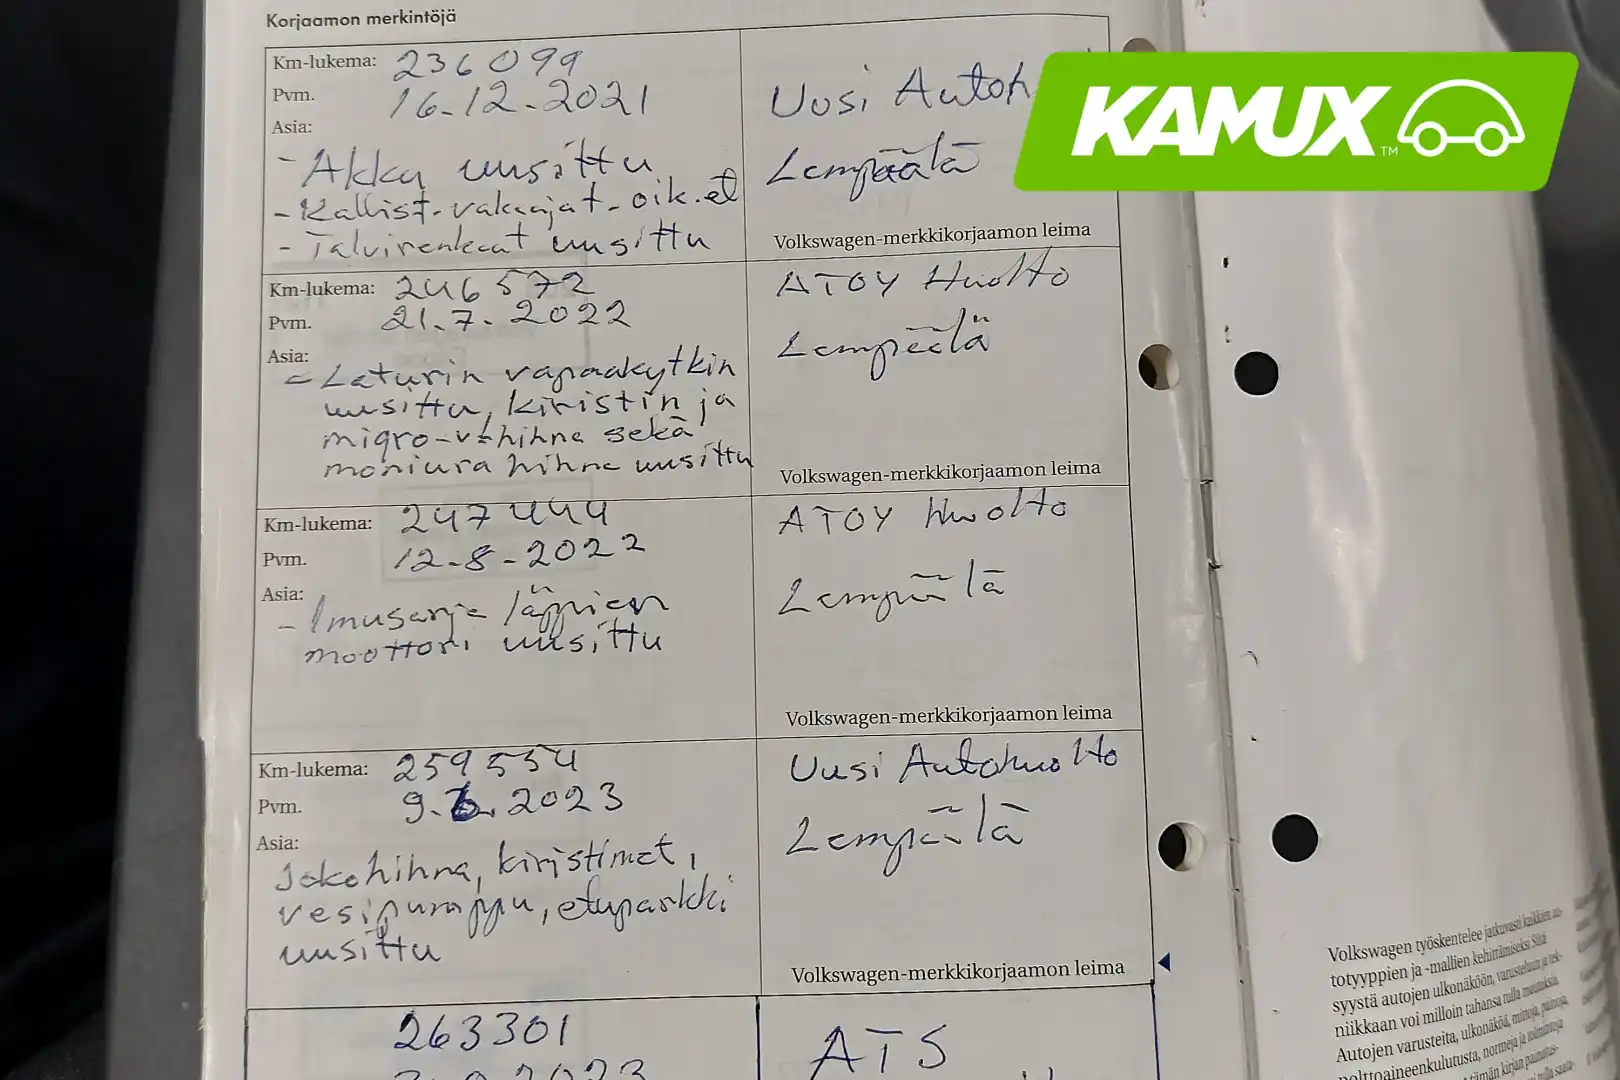 Korjaamon merkintöjä
Km-lukema: 236099
Pvm. 16.12.2021
Asia:
- Akku uusittu
- Kallist.vakaajat-oik.et
- Talvirenkaat uusittu
Uusi Autoh
Lempäälä
Volkswagen-merkkikorjaamon leima
KAMUX
TM
Km-lukema: 246572
Pvm. 21.7.2022
Asia:
- Laturin vapaakytkin
uusittu, kiristin ja
migro-v-hihna sekä
moniura hihna uusittu
ATOY Huolto
Lempäälä
Volkswagen-merkkikorjaamon leima
Km-lukema: 247444
Pvm. 12-8-2022
Asia:
- Imusarja läppien
moottori uusittu
ATOY Huolto
Lempäälä
Volkswagen-merkkikorjaamon leima
Km-lukema: 259554
Pvm. 9.6.2023
Asia:
Jakohihna, kiristimet,
vesipumppu, etuparkki
uusittu
Uusi Autohuolto
Lempäälä
Volkswagen-merkkikorjaamon leima
263301
2023
ATS
Volkswagen työskentelee jatkuvasti kaikkien
totyyppien ja -mallien kehittämiseksi Siitä
syystä autojen ulkonäköön, varusteluun ja tek-
niikkaan voi milloin tahansa tulla muutoksia.
Autojen varusteita, ulkonäköä, mittoja, painoja,
polttoaineenkulutusta, normeja ja toimintoja
tämän kirjan